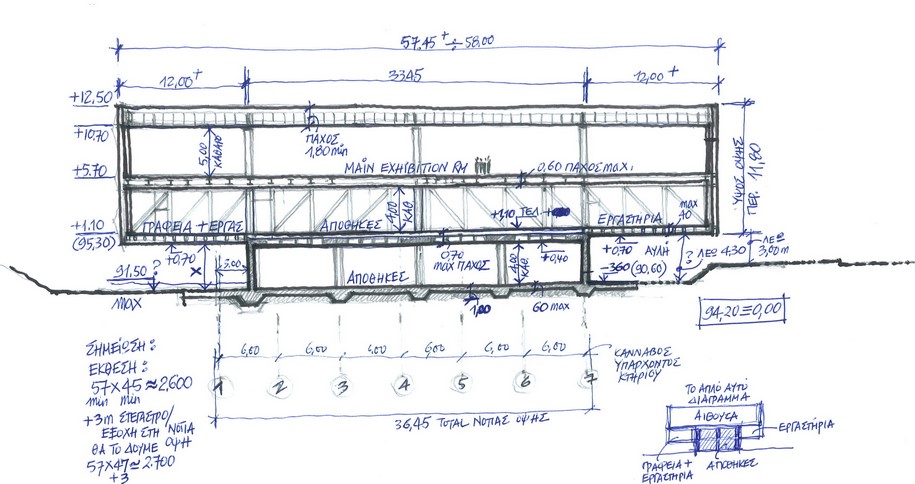 57.45⁺ ÷ 58.00
12,00⁺
3345
12,00⁺
+12,50
+10.70
+5.70
+1.10
(95,30)
5,00
ΚΑΘΑΡΟ
ΠΑΧΟΣ
1,80 min
MAIN EXHIBITION RM
0,60 ΠΑΧΟΣ max
ΥΨΟΣ ΟΨΗΣ
ΠΕΡ. 11,80
ΓΡΑΦΕΙΑ + ΕΡΓΑΣ
ΑΠΟΘΗΚΕΣ
4,00
ΚΑΘ.
+1.10 ΤΕΛ.
ΕΡΓΑΣΤΗΡΙΑ
max
40
+0,70
X
3.00
91,50
?
max
ΑΠΟΘΗΚΕΣ
0,70
max ΠΑΧΟΣ
4,00
ΚΑΘ.
+0,40
+0,70 ΑΥΛΗ
-360 (90,60)
? ΛΕΩ 4.30
ΛΕΩ
3,00m
60 max
94,20 ≡ 0,00
ΣΗΜΕΙΩΣΗ :
ΕΚΘΕΣΗ :
57 X 45 ≈ 2,600
min min
+3m ΣΤΕΓΑΣΤΡΟ/
ΕΞΟΧΗ ΣΤΗ ΝΟΤΙΑ
ΘΑ ΤΟ ΔΟΥΜΕ ΟΨΗ
57 X 47 ≈ 2.700
+3
6,00 6,00 6,00 6,00 6,00 6,00
1 2 3 4 5 6 7
ΚΑΝΝΑΒΟΣ
ΥΠΑΡΧΟΝΤΟΣ
ΚΤΗΡΙΟΥ
36,45 TOTAL ΝΟΤΙΑΣ ΟΨΗΣ
ΤΟ ΑΠΛΟ ΑΥΤΟ
ΔΙΑΓΡΑΜΜΑ
ΑΙΘΟΥΣΑ
ΕΡΓΑΣΤΗΡΙΑ
ΓΡΑΦΕΙΑ +
ΕΡΓΑΣΤΗΡΙΑ
ΑΠΟΘΗΚΕΣ